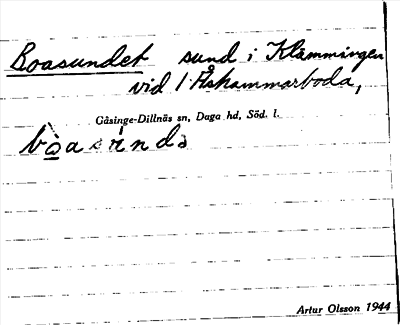 Boasundet sund i Klämmingen
vid Åskammarboda,
Gåsinge-Dillnäs sn, Daga hd, Söd. l.
Artur Olsson 1944